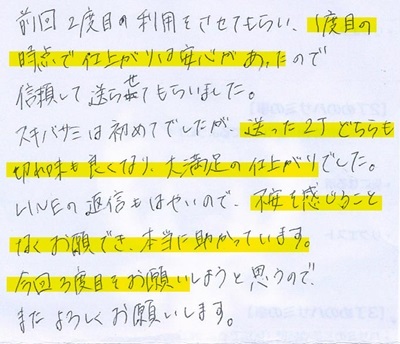 前回2度目の利用をさせてもらい、1度目の
時点で仕上がりは安心があったので
信頼して送らせてもらいました。
スキバサミは初めてでしたが、送った2丁どちらも
切れ味も良くなり、大満足の仕上がりでした。
LINEの返信もはやいので、不安を感じること
なくお願いでき、本当に助かっています。
今回3度目をお願いしようと思うので、
またよろしくお願いします。